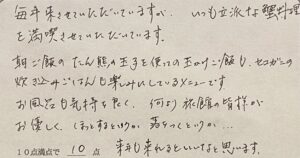 毎年来させていただいていますが、いつも立派な蟹料理
を満喫させていただいています。
朝ご飯の たん熊の玉子を使っての玉かけご飯も、セコガニの
炊込みごはんも楽しみにしているメニューです
お風呂も気持ち良く、何より旅館の皆様が
お優しく、ほっとするというか 落ちつくというか…
10点満点で 10 点 来年も来れるといいなと思います。